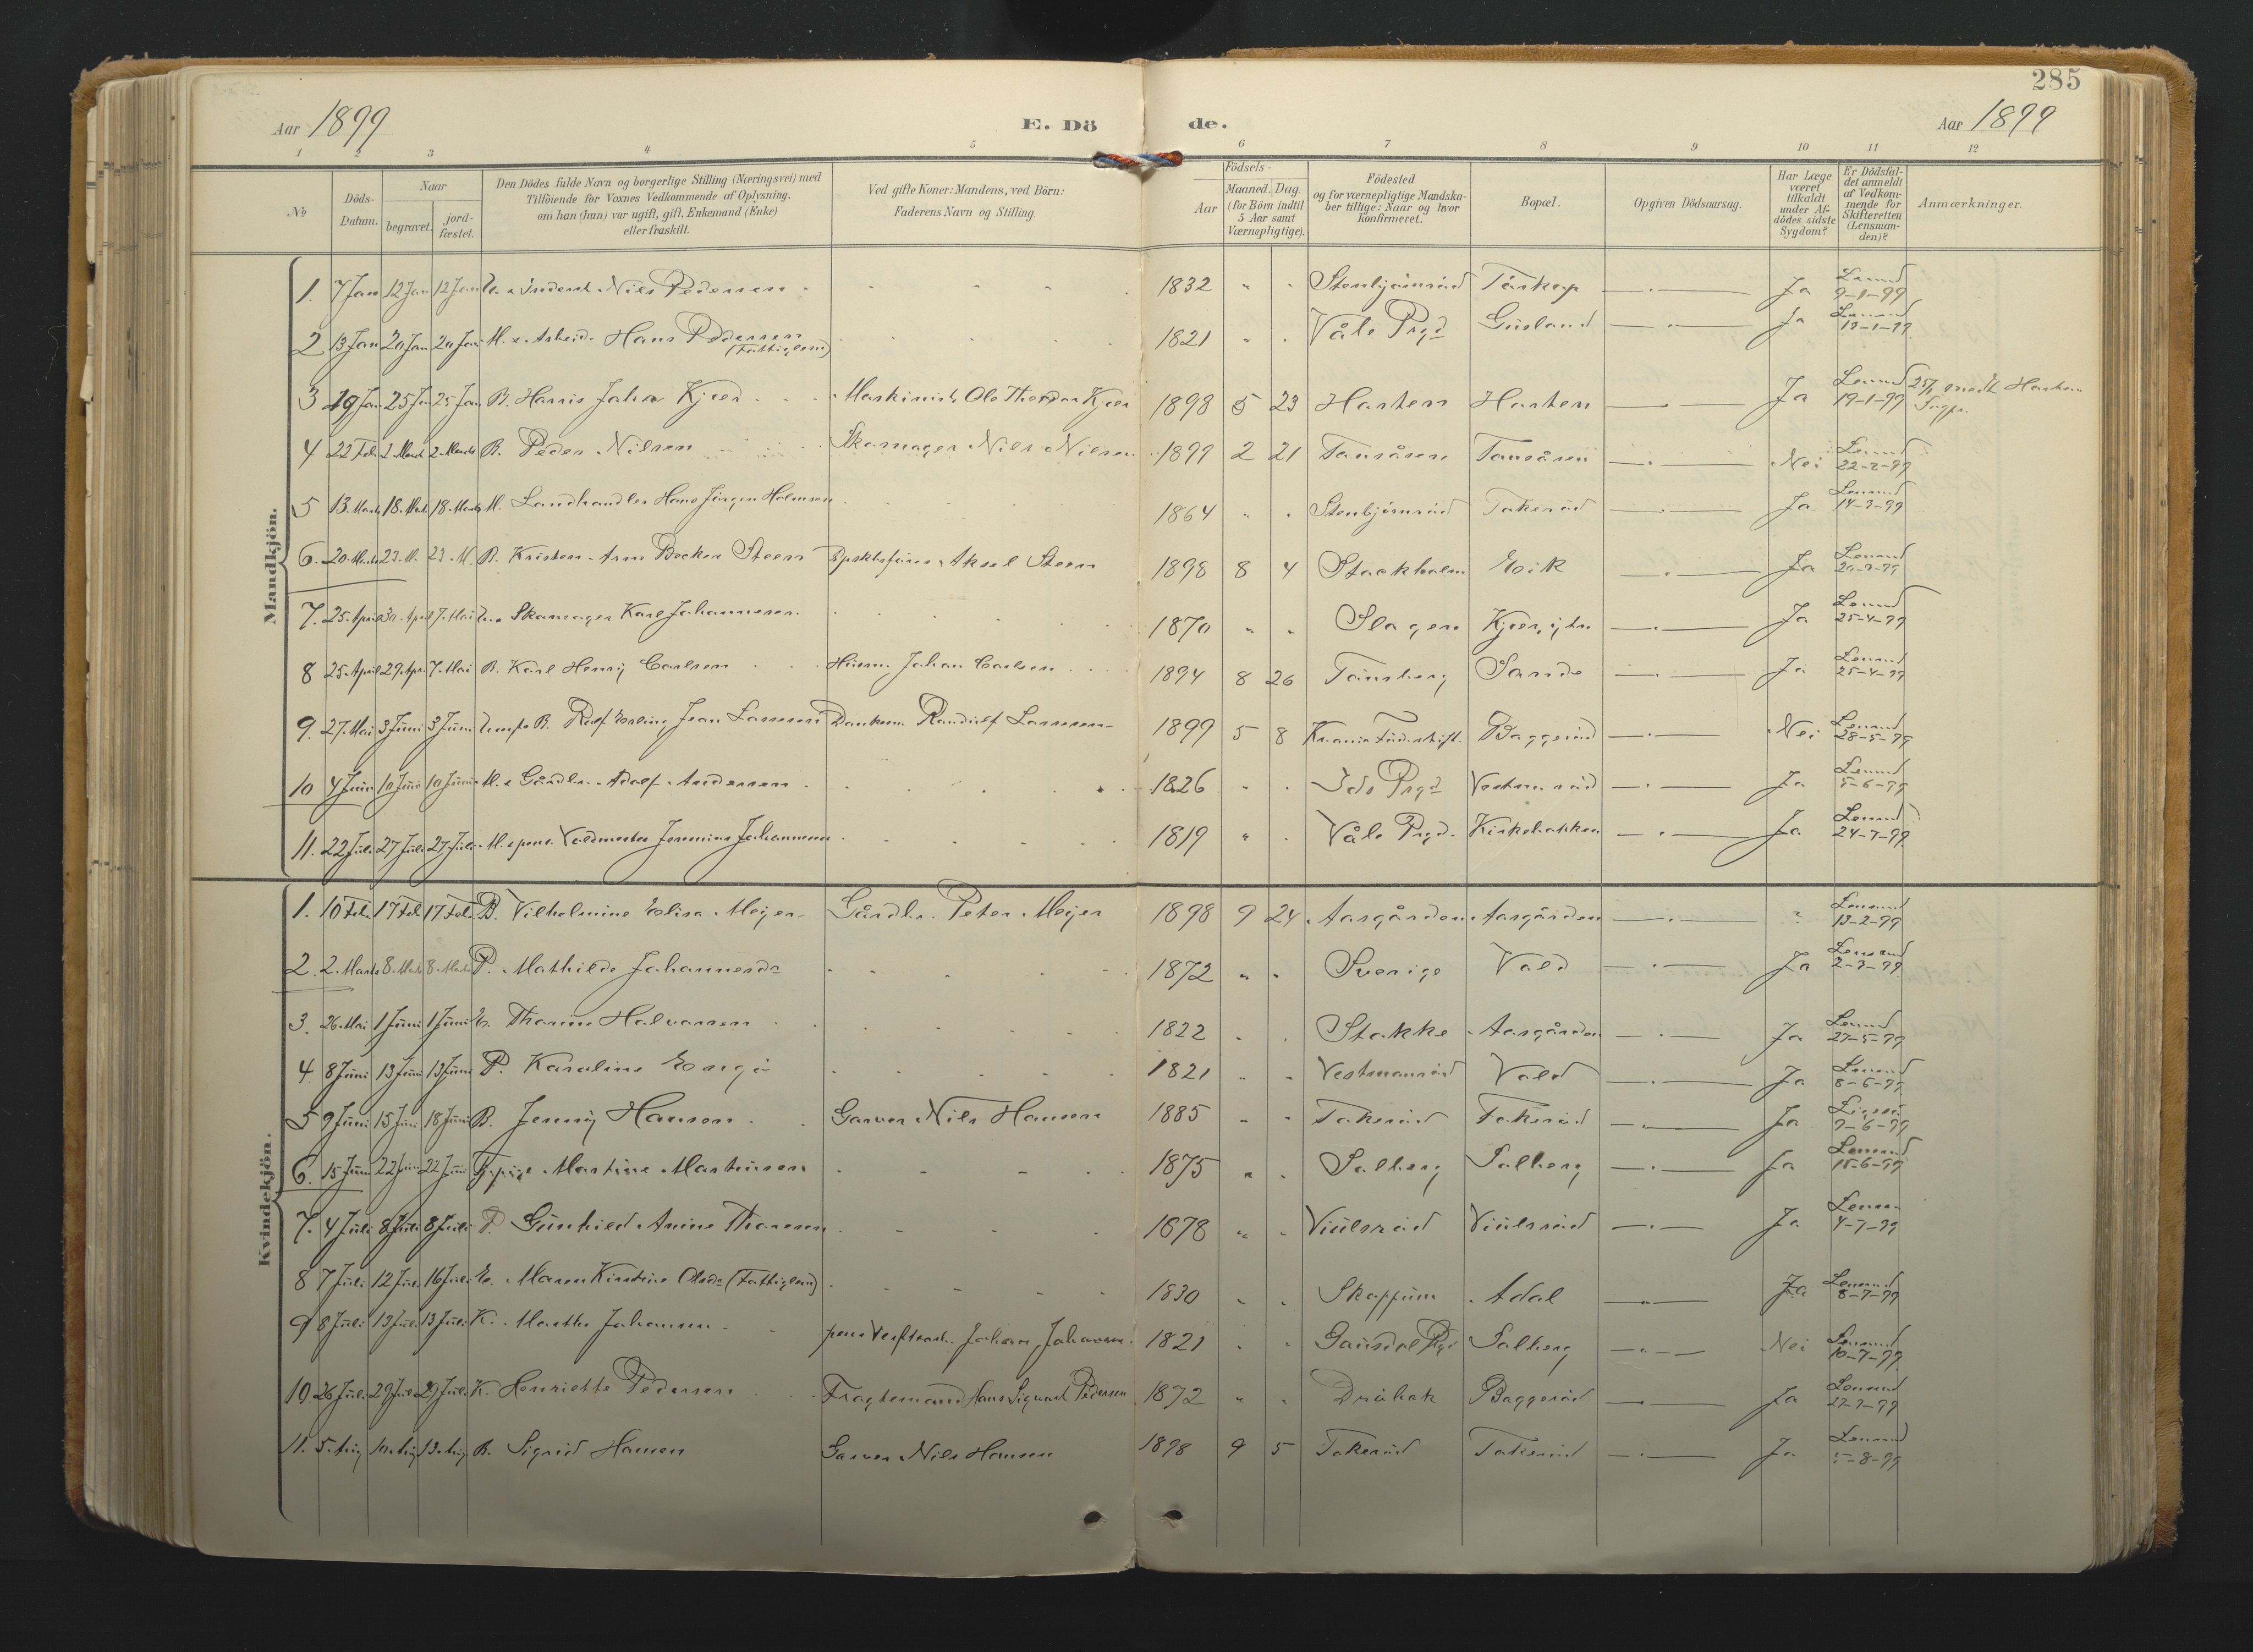 285
Aar 1899 E. Dö de. Aar 1899
1 2 3 4 5 6 7 8 9 10 11 12
№ Döds-Datum. Naar begravet. jord-fæstet. Den Dödes fulde Navn og borgerlige Stilling (Næringsvei) med Tilföiende for Voxnes Vedkommende af Oplysning, om han (hun) var ugift, gift, Enkemand (Enke) eller fraskilt. Ved gifte Koner: Mandens, ved Börn: Faderens Navn og Stilling. Födsels- Aar Maaned. Dag. (for Börn indtil 5 Aar samt Værnepligtige). Födested og for værnepligtige Mandskaber tillige: Naar og hvor Konfirmeret. Bopæl. Opgiven Dödsaarsag. Har Læge været tilkaldt under Afdödes sidste Sygdom? Er Dödsfaldet anmeldt af Vedkommende for Skifteretten (Lensmanden)? Anmærkninger.
Mandkjön.
1. 7 Jan 12 Jan 12 Jan Nils Pedersen 1832 " " Stenbjörnröd Ja Lensmd 9-1-99
2 13 Jan 20 Jan 20 Jan M. e. Arbeid. Hans Pedersen (Fattiglem) 1821 " " Våle Prgd Gusland Ja Lensmd 13-1-99
3 19 Jan 25 Jan 25 Jan B. Harris Johan Kjær Maskinist Ole Theodor Kjær 1898 5 23 Horten Horten Ja Lensmd 19-1-99
4 22 Feb 2 Marts 2 Marts B. Peder Nilsen Skomager Nils Nilsen 1899 2 21 Tausåsen Tausåsen Nei Lensmd 22-2-99
5 13. Marts 18. Mrts 18. Marts M. Landhandler Hans Jörgen Holmsen 1864 " " Stenbjörnröd Takeröd Ja Lensmd 14-3-99
6. 20. Marts 23. M. 23. M. B. Kristen Arne Becker Steen Aksel Steen 1898 8 4 Stockholm Eik Ja Lensmd 20-3-99
7. 25. April 30. April 7. Mai Skomager Karl Johannesen 1870 " " Slagen Ja Lensmd 25-4-99
8 25. April 29. Apr. 7. Mai B. Karl Henrij Carlsen Husm. Johan Carlsen 1894 8 26 Tönsberg Sande Ja Lensmd 25-4-99
9. 27. Mai 3 Juni 3 Juni B. Rolf Erling Jean Larssen Randulf Larssen 1899 5 8 Baggeröd Nei Lensmd 28-5-99
10 4 Juni 10 Juni 10 Juni M. e Gårdbr. Adolf Andersen 1826 " " Ids Prgd Vestmanröd Ja Lensmd 5-6-99
11. 22 Juli 27 Juli 27 Juli M. e pens. Voldmester Jeremias Johannesen 1819 " " Våle Prgd. Kirkebakken Ja Lensmd 24-7-99
Kvindekjön.
1. 10 Feb. 17 Feb 17 Feb. B. Vilhelmine Elisa Meijer Gårdbr. Peter Meijer 1898 9 24 Aasgården Aasgården " Lensmd 13-2-99
2. 2. Marts 8. Marts 8. Marts P. Mathilde Johannesdr 1872 " " Sverige Vold Ja Lensmd 2-3-99
3. 26. Mai 1 Juni 1 Juni E. Thorine Halvorsen 1822 " " Stokke Aasgården Ja Lensmd 27-5-99
4. 8 Juni 13 Juni 13 Juni P. Karoline Borgö 1821 " " Vestmanröd Vold Ja Lensmd 8-6-99
5 9 Juni 15 Juni 18 Juni B. Jennij Hansen Garver Nils Hansen 1885 " " Takeröd Takeröd Ja 9-6-99
6. 15 Juni 22 Juni 22 Juni Martine Martinsen 1875 " " Solberg Solberg Ja Lensmd 15-6-99
7. 4 Juli 8 Juli 8 Juli P. Gunhild Anine Thoresen 1878 " " Viulsröd Viulsröd Ja Lensm 4-7-99
8 7 Juli 12 Juli 16 Juli E. Maren Kirstine Olsdr (Fattiglem) 1830 " " Skoppum Adal Ja Lensmd 8-7-99
9 8 Juli 13 Juli 13 Juli K. Marthe Johansen Johan Johansen 1821 " " Gausdal Prgd Solberg Nei Lensmd 10-7-99
10. 26 Juli 29 Juli 29 Juli K. Henriette Pedersen Fragtemand Hans Sigvart Pedersen 1872 " " Dröbak Baggeröd Ja Lensmd 27-7-99
11. 5. Aug 10. Aug 13. Aug B. Sigrid Hansen Garver Nils Hansen 1898 9 5 Takeröd Takeröd Ja Lensmd 5-8-99